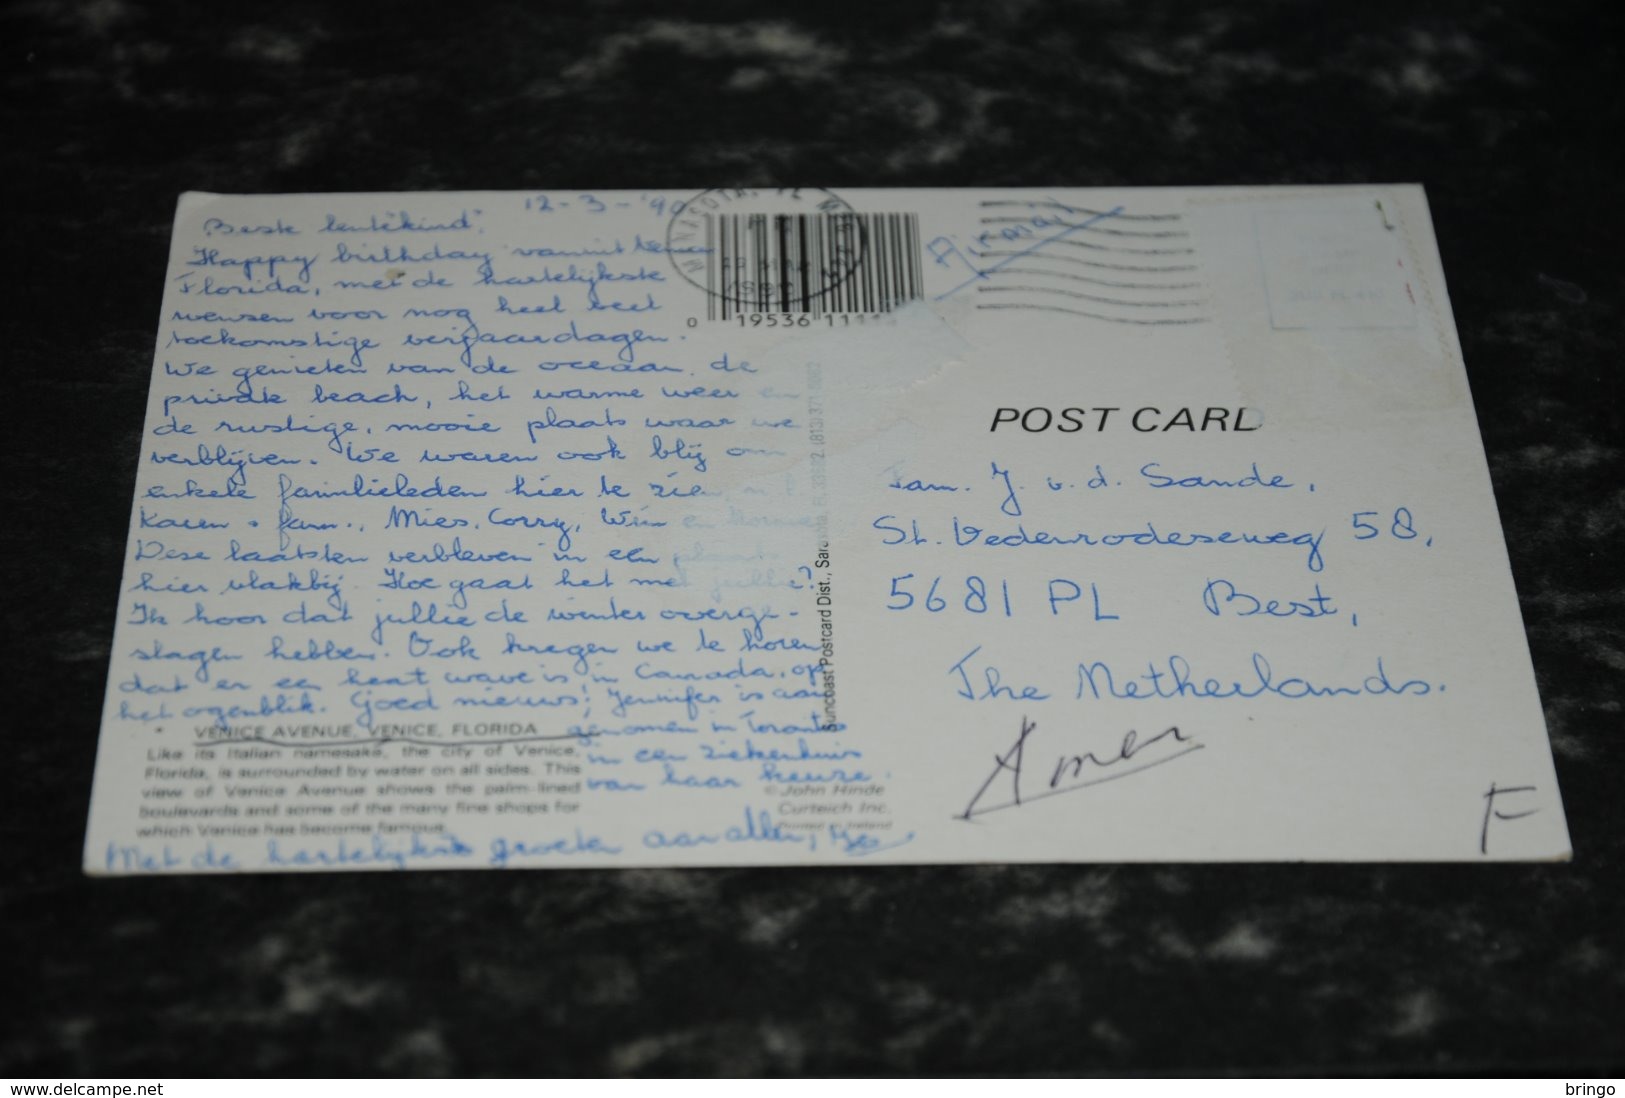 12-3-'90
Beste lentekind",
Happy birthday vanuit Venice
Florida, met de hartelijkste
wensen voor nog heel veel
toekomstige verjaardagen.
We genieten van de oceaan, de
private beach, het warme weer en
de rustige, mooie plaats waar we
verblijven. We waren ook blij om
enkele familieleden hier te zien,
Karen & fam., Mies, Corry, Wim en
Deze laatsten verbleven in een plaats
hier vlakbij. Hoe gaat het met jullie?
Ik hoor dat jullie de winter overge-
slagen hebben. Ook kregen we te horen
dat er een heat wave is in Canada, op
het ogenblik. Goed nieuws! Jennifer is aan
genomen in Toronto
in een ziekenhuis
van haar keuze.
Met de hartelijkste groeten aan allen,
VENICE AVENUE, VENICE, FLORIDA
Like its Italian namesake, the city of Venice,
Florida, is surrounded by water on all sides. This
view of Venice Avenue shows the palm-lined
boulevards and some of the many fine shops for
which Venice has become famous.
© John Hinde
Curteich Inc.
Printed in Ireland
Suncoast Postcard Dist., Sarasota, Fl. 33582. (813)
MANASOTA, FL
PM
1990
0 19536 1111
Airmail
POST CARD
Fam. J. v. d. Sande,
St. Oedenrodeseweg 58,
5681 PL Best,
The Netherlands.
Amer
F
www.delcampe.net
bringo